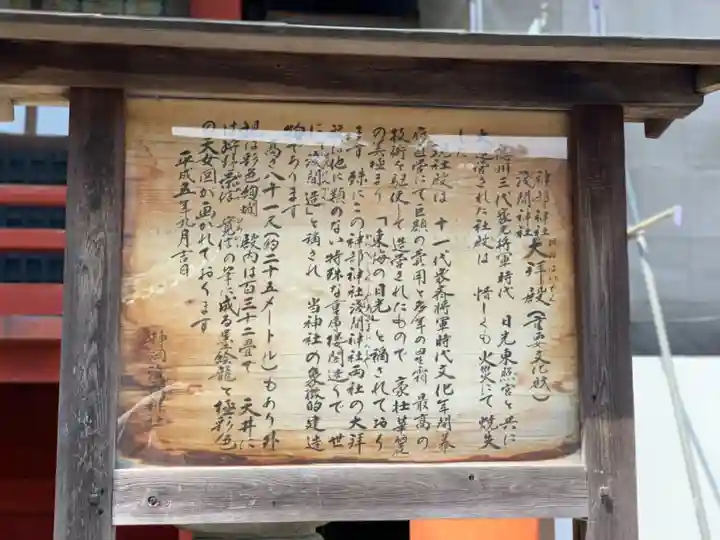 神部神社
浅間神社 大拝殿(重要文化財)
徳川三代家光将軍時代 日光東照宮と共に
大造営された社殿は 惜しくも火災にて焼失
した
現社殿は 十一代家斉将軍時代文化年間幕
府直営にて巨額の費用と多年の星霜 最高の
技術を駆使して造営されたもので 豪壮華麗
の美極まり「東海の日光」と稱されており
ます 殊にこの神部神社浅間神社両社の大拝
殿は他に類のない特殊な重層楼閣造りで 世
に「浅間造」と稱され 当神社の象徴的建造
物であります
高さ八十一尺(約二十五メートル)もあり外
観は彩色絢爛 殿内は百三十二畳で 天井に
は狩野栄信 寛信の筆に成る墨絵龍と極彩色
の天女図が画かれております
平成五年九月吉日
静岡浅間神社